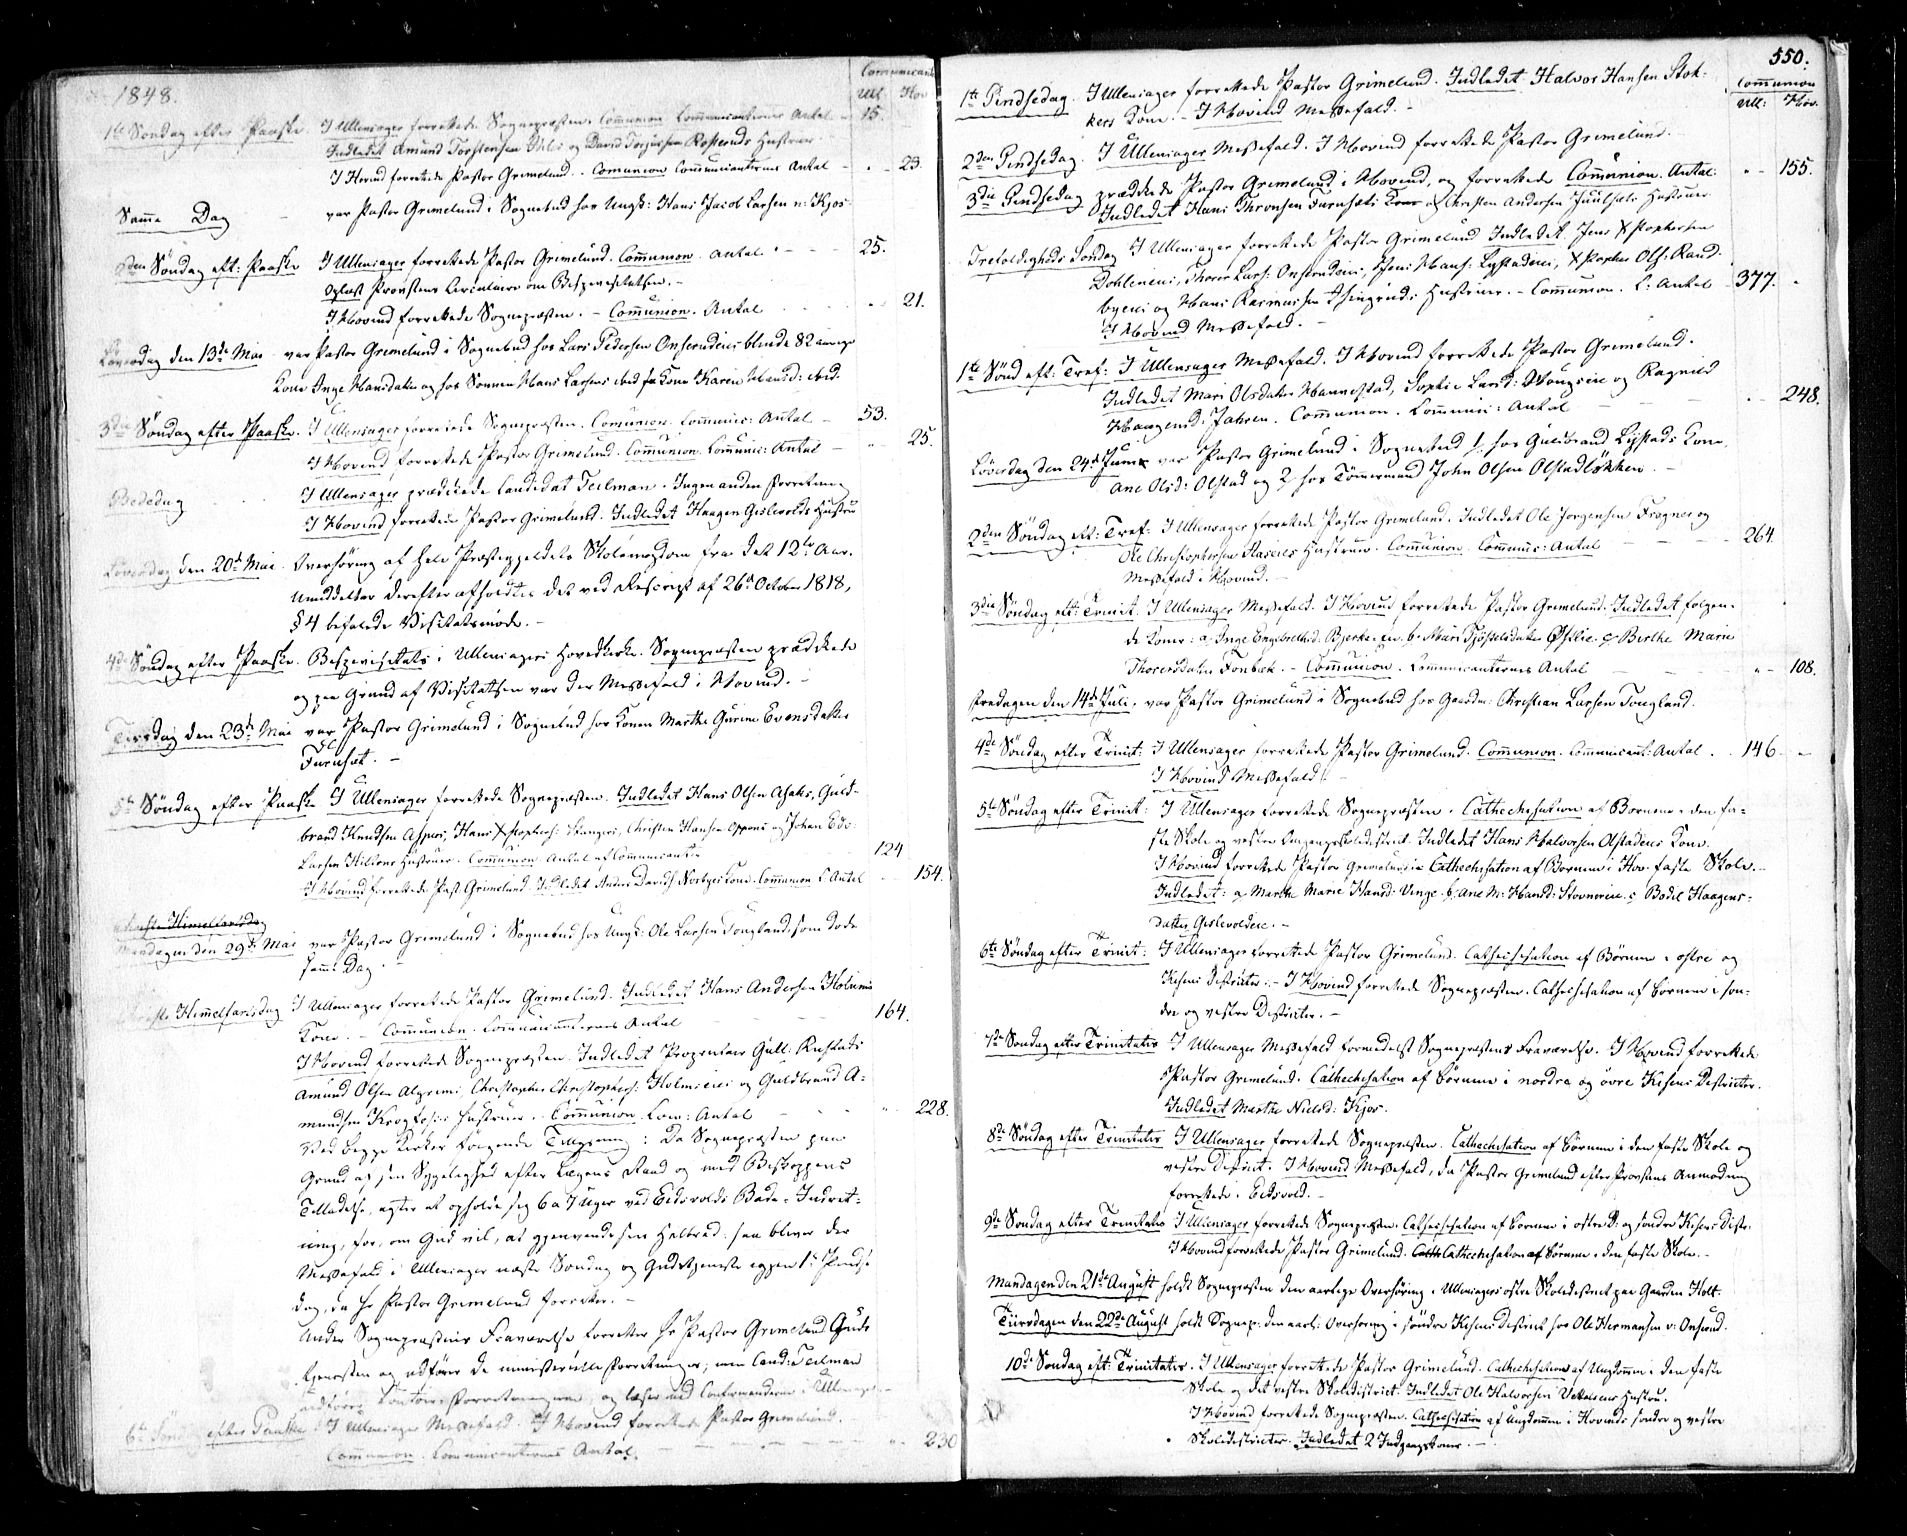 1848.
Communicant.
Ull. Hov
1ste Søndag efter Paaske. I Ullensager forrettede Sognepræsten. Communion Communicanternes Antal 15.
Indledet Amund Torstensen og David Hustruer
I Hovind forrettede Pastor Grimelund. Communion Communicanternes Antal 23.
Samme Dag var Pastor Grimelund i Sognebud hos Ungk: Hans Jacob Larsen n: Kjos
2den Søndag eft: Paaske I Ullensager forrettede Pastor Grimelund. Communion. Antal 25.
Oplæst Provstens Circulaire om Bispevisitatsen.
I Hovind forrettede Sognepræsten. Communion. Antal 21.
Løverdag den 13de Mai var Pastor Grimelund i Sognebud hos Lars Pedersen Onsrudeies blinde 82 aarige
Kone Inge Hansdatter og hos Sønnen Hans Larsens ibid Kone Karen Hansd: ibid.
3die Søndag efter Paaske. I Ullensager forrettede Sognepræsten. Communion. Communic: Antal 53.
I Hovind forrettede Pastor Grimelund. Communion. Communic: Antal 25.
Bededag I Ullensager prædikede Candidat Teilman. Ingen anden Forretning
I Hovind forrettede Pastor Grimelund. Indledet Haagen Gislevolds Hustru
Løverdag den 20de Mai. Overhøring af hele Præstegjeldets Skoleungdom fra det 12te Aar.
Umiddelbar derefter afholdtes det ved Rescript af 26de October 1818,
§ 4 befalede Visitatsmøde.
4de Søndag efter Paaske. Bispevisitats i Ullensagers Hovedkirke. Sognepræsten prædikede
og paa Grund af Visitatsen var der Messefald i Hovind.
Tirsdag den 23de Mai var Pastor Grimelund i Sognebud hos Konen Marthe Gurine Evensdatter
Furuset.
5te Søndag efter Paaske I Ullensager forrettede Sognepræsten. Indledet Hans Olsen Asaks, Guld-
brand Knudsen Aspers, Hans Xstophers: Stangers, Christen Hansen Oppens og Johan Edv:
Larsen Hiltons Hustruer. Communion Antal af Communicanter 124
I Hovind forrettede Past. Grimelund. Indledet Anders Davids: Norbyes Kone. Communion C Antal 154.
Christi Himmelfartsdag
Mandagen den 29de Mai var Pastor Grimelund i Sognebud hos Ungk: Ole Larsen Tougland, som døde
samme Dag.
Christi Himmelfartsdag I Ullensager forrettede Pastor Grimelund. Indledet Hans Andersen Holums
Kone. Communion. Communicanternes Antal 164.
I Hovind forrettede Sognepræsten. Indledet Proprietair Gull: Rustads
Amund Olsen Algrims, Christopher Christophers: Holmseies og Guldbrand A-
mundsen Hustruer. Communion. Com: Antal 228.
Ved begge Kirker følgende Tillysning: Da Sognepræsten paa
Grund af sin Sygelighed efter Lægens Raad og med Biskoppens
Tilladelse, agter at opholde sig 6 a 7 Uger ved Eidsvolds Bade-Indret-
ning, for, om Gud vil, at gjenvinde sin Helbred: saa bliver der
Messefald i Ullensager næste Søndag og Gudstjeneste igjen 1ste Pindse-
dag, da Hr Pastor Grimelund forretter.
Under Sognepræstens Fraværelse forretter Hr Pastor Grimelund Guds-
tjenesten og udfører de ministerielle Forretninger; men Cand: Teilman
udfører Contoirforretningerne, og læser med Confirmanderne i Ullensager
6te Sønd: efter Paaske I Ullensager Messefald. I Hovind forrettede Pastor Grimelund.
Communion. Communicanternes Antal. 230
550.
Communion
Ull: Hov.
1ste Pindsedag. I Ullensager forrettede Pastor Grimelund. Indledet Halvor Hansen Stok-
kers Kone. I Hovind Messefald.
2den Pindsedag. I Ullensager Messefald. I Hovind forrettede Pastor Grimelund.
3die Pindsedag prædikede Pastor Grimelund i Hovind, og forrettede Communion. Antal 155.
Indledet Hans Thronsen Furusets Kone og Christen Andersen Juulsets Hustruer
Trefoldigheds Søndag I Ullensager forrettede Pastor Grimelund Indledet Jens Xstophersen
Dohleneies, Thorer Lars: Onsrudeies, Jens Hans: Lystadeies, Xstopher Ols: Rand-
byeies og Hans Rasmussen Hustruer. Communion. C: Antal 377.
I Hovind Messefald.
1ste Sønd eft: Tref: I Ullensager Messefald. I Hovind forrettede Pastor Grimelund.
Indledet Mari Olsdatter Hannestad, Sophie Larsd: Hougseie og Ragnild
Haagensd. Jahren. Communion. Communic: Antal 248.
Løverdag den 24de Juni var Pastor Grimelund i Sognebud 1. hos Guldbrand Lystads Kone
Ane Olsd: Olstad og 2 hos Tømmermand John Olsen Olstadløkken.
2den Søndag eft: Tref: I Ullensager forrettede Pastor Grimelund. Indledet Ole Jørgensen Frogner og
Ole Christophersen Hustruer. Communion. Communic: Antal 264.
Messefald i Hovind.
3die Søndag eft: Trinit. I Ullensager Messefald. I Hovind forrettede Pastor Grimelund. Indledet følgen-
de Koner: a, Inge Engebrethsd. Bjerke-en. b. Mari Østlie. c, Berthe Marie
Thorersdatter Fonbæk. Communion. Communicanternes Antal 108.
Fredagen den 14de Juli, var Pastor Grimelund i Sognebud hos Gaardm: Christian Larsen Tougland.
4de Søndag efter Trinit: I Ullensager forrettede Pastor Grimelund. Communion. Communicant: Antal 146
I Hovind Messefald.
5te Søndag efter Trinit: I Ullensager forrettede Sognepræsten. Cathechisation af Børnene i den fa-
ste Skole og vestre Omgangsskoledistrict. Indledet Hans Halvorsen Olstadeies Kone.
I Hovind forrettede Pastor Grimelund Cathechisation af Børnene i Hov. faste Skole.
Indledet: a, Marthe Marie Hansd: Unge. b, Ane M: Hansd: Hovneeie. c Bodil Haagens-
datter Gislevoldeie.
6te Søndag efter Trinit: I Ullensager forrettede Pastor Grimelund. Cathechisation af Børnene i østre og
Kisens Districter. I Hovind forrettede Sognepræsten. Cathechisation af Børnene i søn-
dre og vestre Districter.
7de Søndag efter Trinitatis I Ullensager Messefald formedelst Sognepræstens Fraværelse. I Hovind forrettede
Pastor Grimelund. Cathechisation af Børnene i nordre og øvre Kisens Districter.
Indledet Marthe Nielsd: Kjos.
8de Søndag efter Trinitatis I Ullensager forrettede Sognepræsten. Cathechisation af Børnene i den faste Skole og
vestre District. I Hovind Messefald, da Pastor Grimelund efter Provstens Anmodning
forrettede i Eidsvold.
9de Søndag efter Trinitatis I Ullensager forrettede Sognepræsten. Cathechisation af Børnene i østre D: og søndre Kisens Distr.
I Hovind forrettede Pastor Grimelund. Cathechisation af Børnene i den faste Skole.
Mandagen den 21de August holdt Sognepræsten den aarlige Overhøring i Ullensagers østre Skoledistrict paa Gaarden Holt.
Tiirsdagen den 22de August holdt Sognep: den aarl: Overhøring i søndre Kisens District hos Ole Hermansen v: Onsrud.
10de Søndag eft: Trinitatis. I Ullensager forrettede Pastor Grimelund. Cathechisation af Ungdommen i den faste
Skole og det vestre Skoledistrict. Indledet Ole Halvorsen Hustru.
I Hovind forrettede Sognepræsten. Cathechisation af Ungdommen i Hovinds søndre og vestre
Skoledistricter. Indledet 2 Indgangskoner.